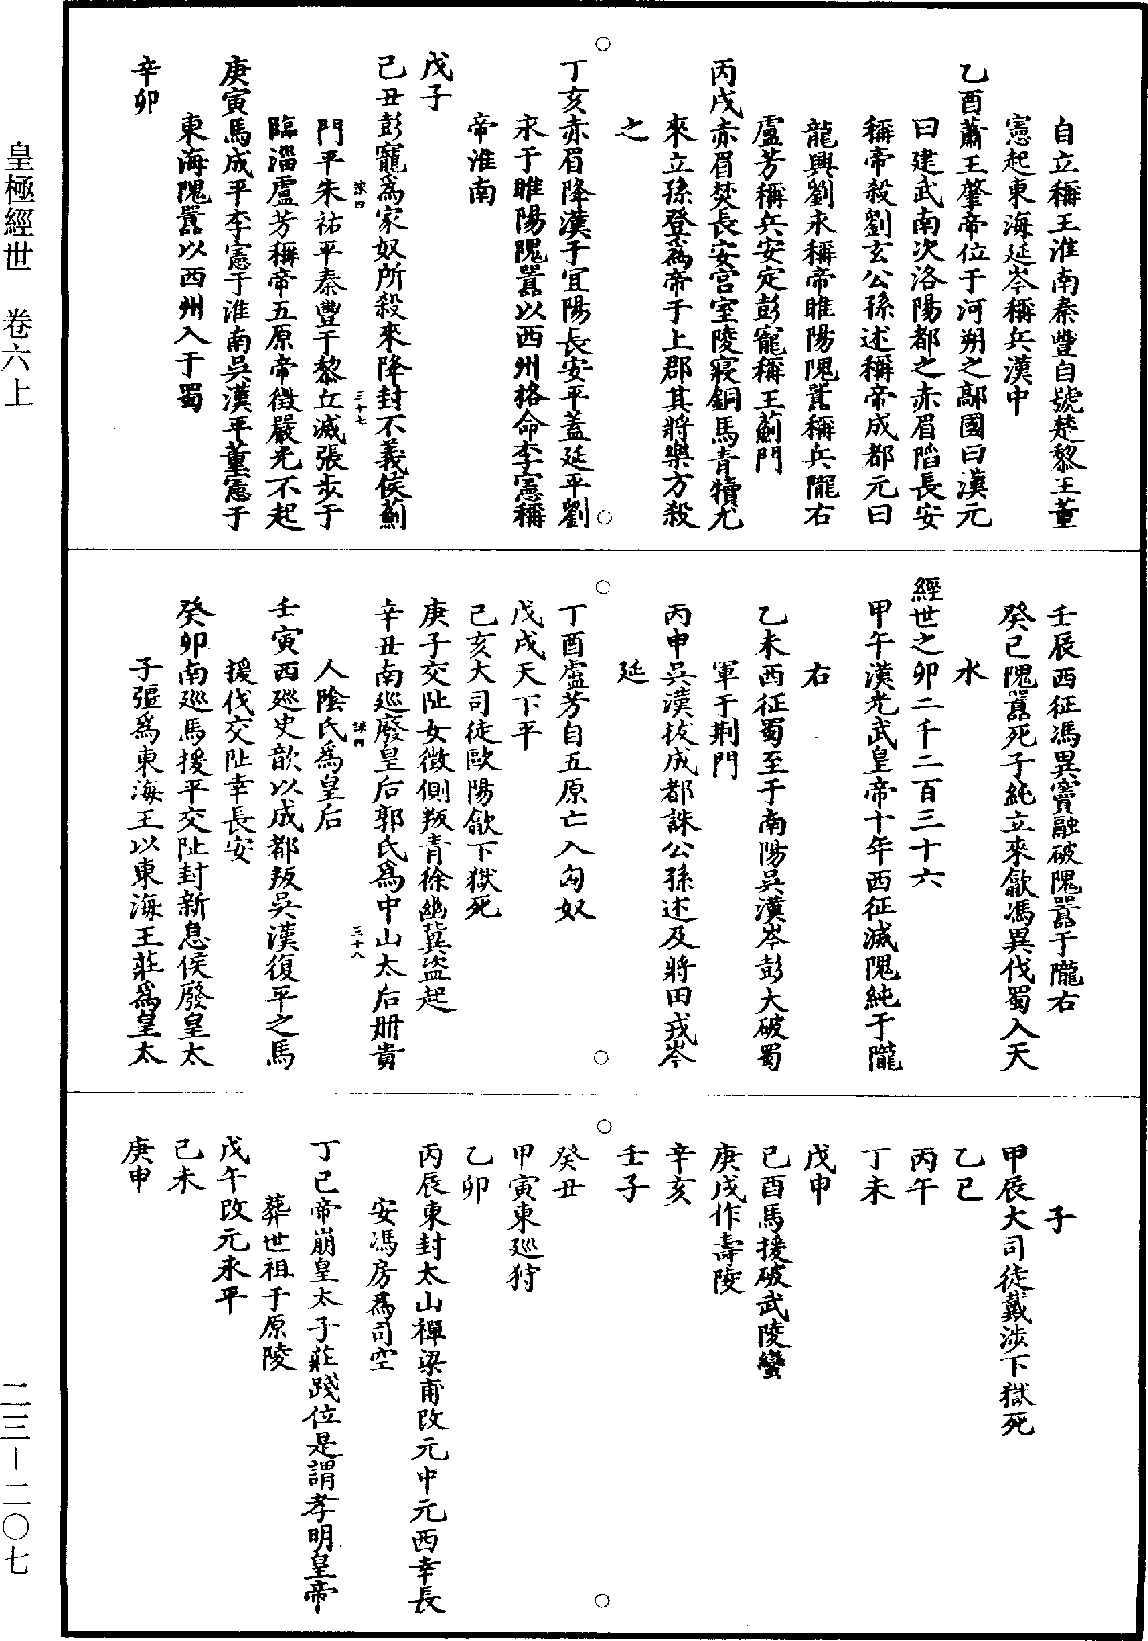 自立稱王淮南秦豐自號楚黎王董
憲起東海延岑稱兵漢中
乙酉蕭王肇帝位于河朔之鄗國曰漢元
曰建武南次洛陽都之赤眉陷長安
稱帝殺劉玄公孫述稱帝成都元曰
龍興劉永稱帝睢陽隗囂稱兵隴右
盧芳稱兵安定彭寵稱王薊門
丙戌赤眉焚長安宮室陵寢銅馬青犢尤
來立孫登爲帝于上郡其將樂方殺
之
丁亥赤眉降漢于宜陽長安平蓋延平劉
永于睢陽隗囂以西州格命李憲稱
帝淮南
戊子
己丑彭寵爲家奴所殺來降封不義侯薊
三十七
門平朱祐平秦豐于黎丘滅張步于
臨淄盧芳稱帝五原帝徵嚴光不起
庚寅馬成平李憲于淮南吳漢平董憲于
東海隗囂以西州入于蜀
辛卯
壬辰西征馮異竇融破隗囂于隴右
癸巳隗囂死子純立來歙馮異伐蜀入天
水
經世之卯二千二百三十六
甲午漢光武皇帝十年西征滅隗純于隴
右
乙未西征蜀至于南陽吳漢岑彭大破蜀
軍于荆門
丙申吳漢拔成都誅公孫述及將田戎岑
延
丁酉盧芳自五原亡入匈奴
戊戌天下平
己亥大司徒歐陽歙下獄死
庚子交阯女徵側叛青徐幽冀盜起
辛丑南巡廢皇后郭氏爲中山太后册貴
三十八
人陰氏爲皇后
壬寅西巡史歆以成都叛吳漢復平之馬
援伐交阯幸長安
癸卯南巡馬援平交阯封新息侯廢皇太
子彊爲東海王以東海王莊爲皇太
子
甲辰大司徒戴涉下獄死
乙巳
丙午
丁未
戊申
己酉馬援破武陵蠻
庚戌作壽陵
辛亥
壬子
癸丑
甲寅東巡狩
乙卯
丙辰東封太山禪梁甫改元中元西幸長
安馮房爲司空
丁巳帝崩皇太子莊踐位是謂孝明皇帝
葬世祖于原陵
戊午改元永平
己未
庚申
皇極經世 卷六上
二三－二〇七